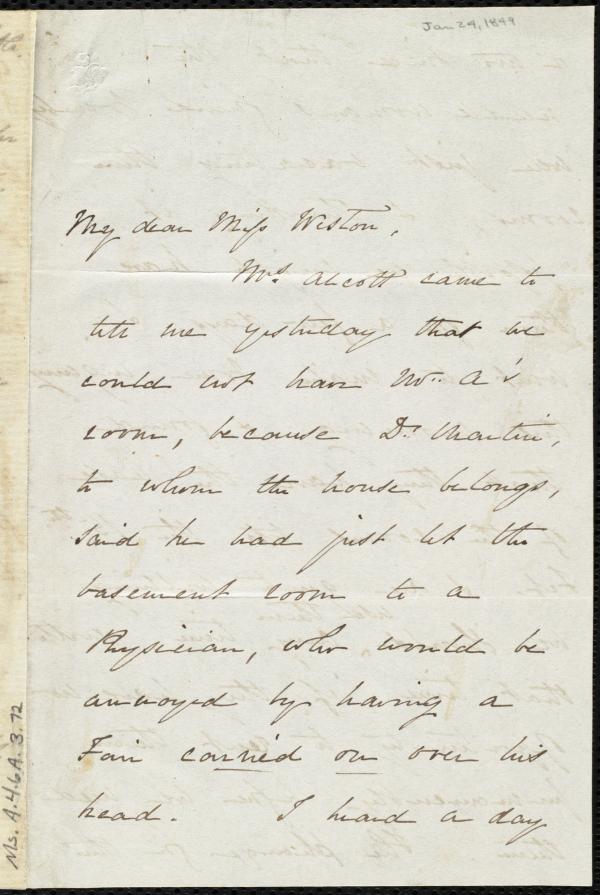 Jan 24, 1849
My dear Miss Weston,
Mrs. Alcott came to
tell me yesterday that we
could not have Mr. A's
room, because Dr. Martin,
to whom the house belongs,
said he had just let the
basement room to a
Physician, who would be
annoyed by having a
Fair carried on over his
head. I heard a day
Ms. A.4.6A.3.72